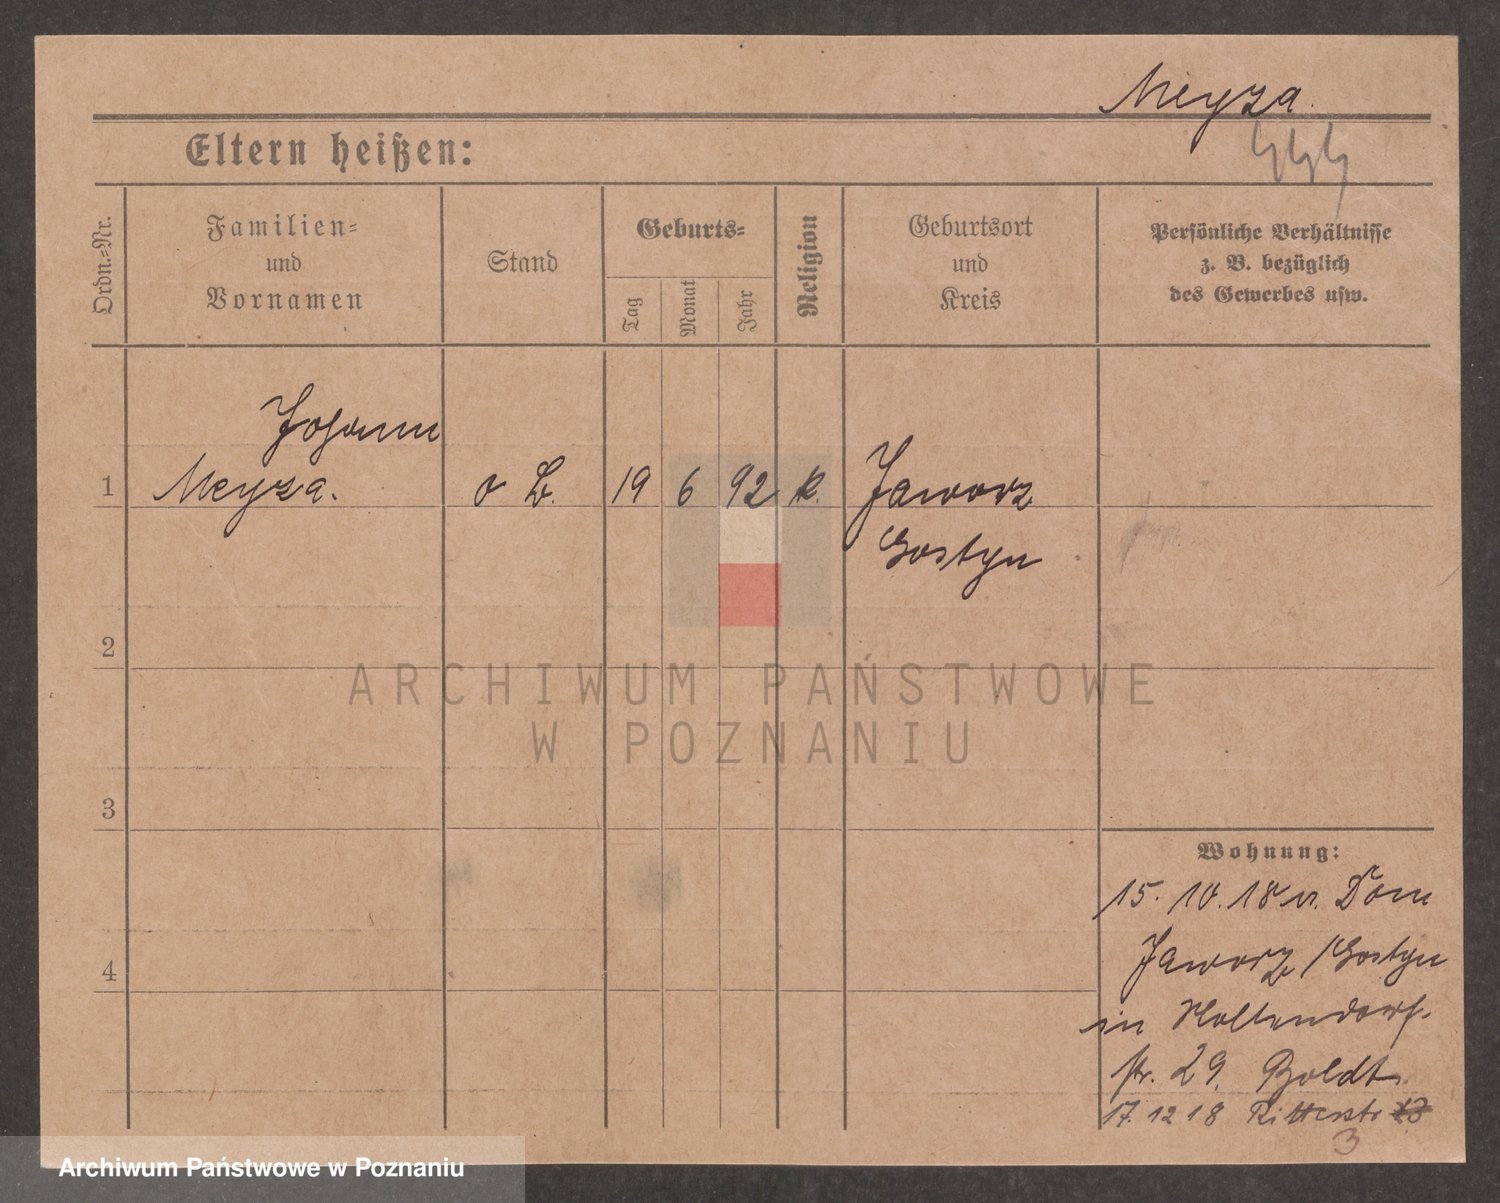 Meyza.
Eltern heißen:
Ordn.=Nr.
Familien=
und
Vornamen
Stand
Geburts=
Tag
Monat
Jahr
Religion
Geburtsort
und
Kreis
Persönliche Verhältnisse
z. B. bezüglich
des Gewerbes usw.
Johann
1 Meyza. 19 6 92 k. Jaworz
Gostyn
2
ARCHIWUM PAŃSTWOWE
W POZNANIU
3
Wohnung:
15. 10. 18 v. Dom
4
Jaworz / Gostyn
in Holtendorf-
str. 29. Boldt.
17. 12 18 Ritterstr
3
Archiwum Państwowe w Poznaniu